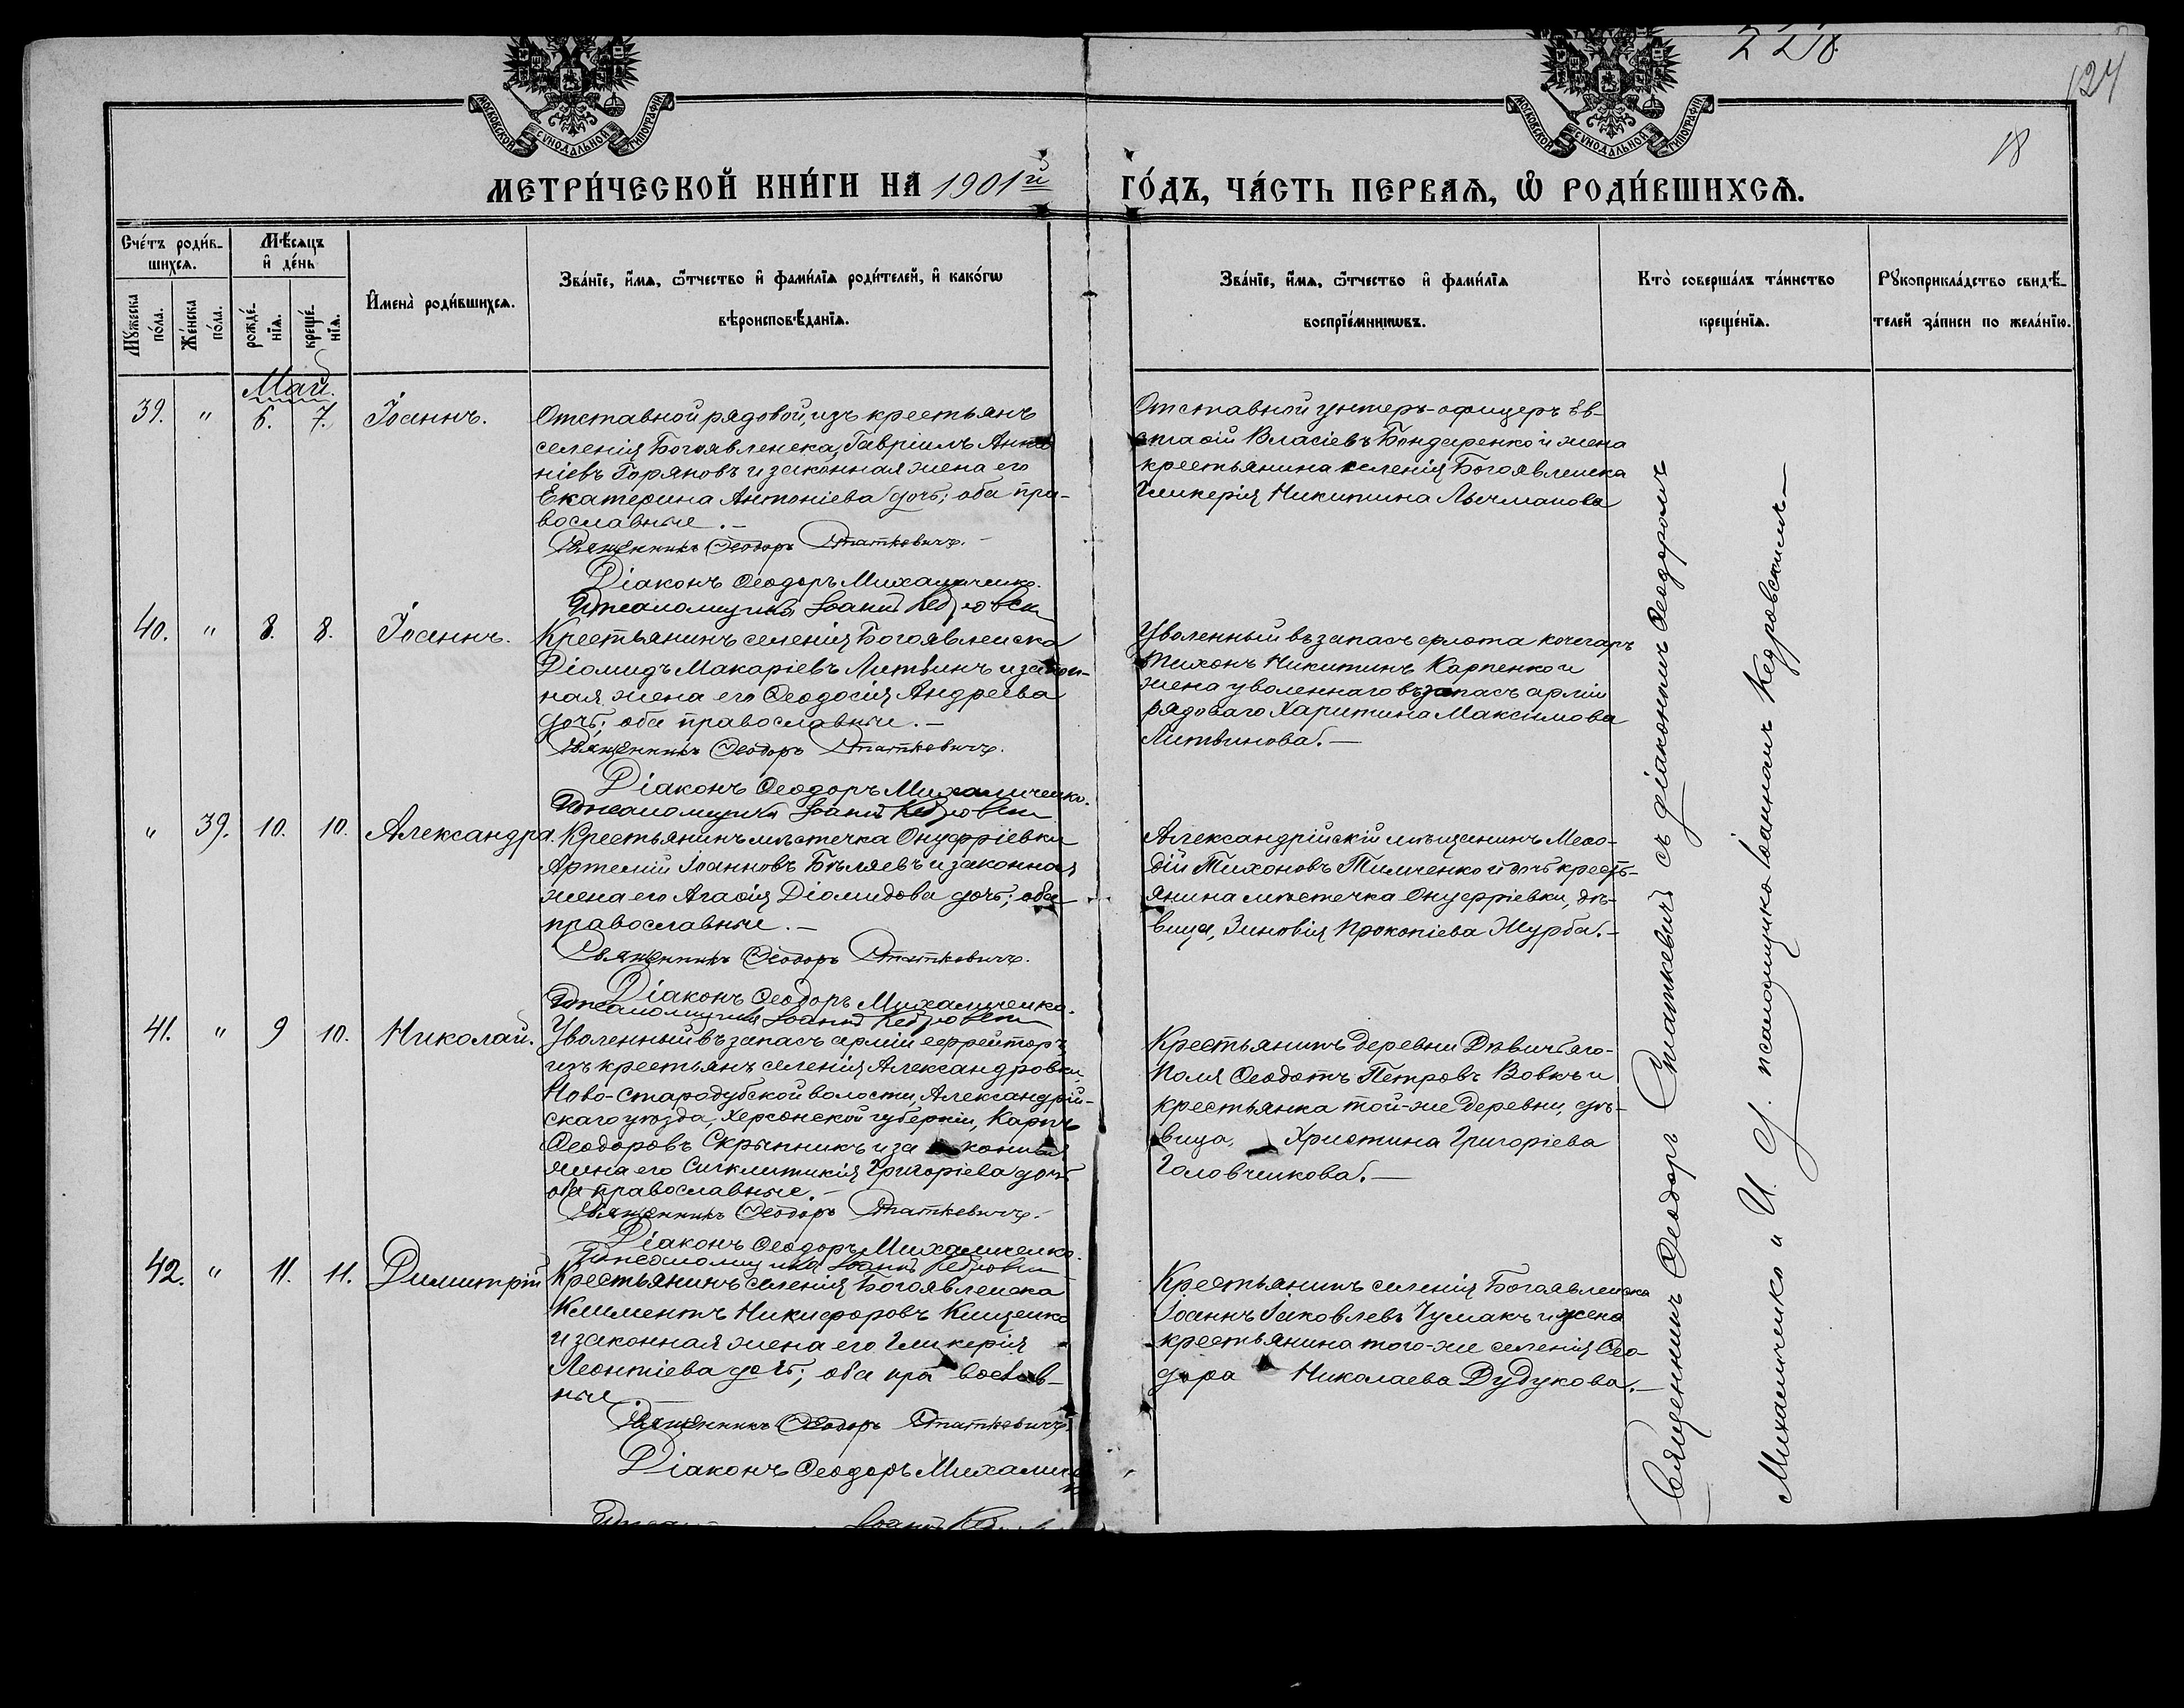 228
124
18
МОСКОВСКОЙ СѴНОДАЛЬНОЙ ТИПОГРАФІИ
МОСКОВСКОЙ СѴНОДАЛЬНОЙ ТИПОГРАФІИ
МЕТРИ́ЧЕСКОЙ КНИ́ГИ НА 1901й ГО́ДЪ, ЧА́СТЬ ПЕРВАѦ, Ѡ҆ РОДИ́ВШИХСѦ.
Сче́тъ роди́в-
шихсѧ.
Мꙋ́жеска
по́ла.
Же́нска
по́ла.
Мѣ́сѧцъ
и҆ де́нь
рожде́-
нїѧ.
креще́-
нїѧ.
И҆мена̀ роди́вшихсѧ.
Зва́нїе, и҆́мѧ, ѻ҆́тчество и҆ фами́лїѧ роди́телей, и҆ како́гѡ
вѣроисповѣ́данїѧ.
Зва́нїе, и҆́мѧ, ѻ҆́тчество и҆ фами́лїѧ
воспрїе́мникѡвъ.
Кто̀ соверша́лъ та́инство
креще́нїѧ.
Рꙋкоприкла́дство свидѣ́-
телей за́писи по жела́нїю.
Май.
39. " 6. 7. Іоаннъ.
Отставной рядовой, изъ крестьянъ
селенія Богоявленска, Гавріилъ Анто
ніевъ Горяновъ и законная жена его
Екатерина Антоніева дочь; оба пра-
вославные.-
Священникъ Ѳеодоръ Статкевичъ.-
Діаконъ Ѳеодоръ Михалченко.
Псаломщикъ Іоаннъ Кедровскій
Отставной унтеръ-офицеръ Ев-
стаѳій Власіевъ Бондаренко и жена
крестьянина селенія Богоявленска
Гликерія Никитина Лычманова
40. " 8. 8. Іоаннъ.
Крестьянинъ селенія Богоявленска
Діомидъ Макаріевъ Литвинъ и закон-
ная жена его Ѳеодосія Андреева
дочь; оба православные.-
Священникъ Ѳеодоръ Статкевичъ.
Діаконъ Ѳеодоръ Михалченко.
Псаломщикъ Іоаннъ Кедровскій
Уволенный въ запасъ флота кочегаръ
Тихонъ Никитинъ Карпенко и
жена уволеннаго въ запасъ арміи
рядоваго Харитина Максимова
Литвинова.-
" 39. 10. 10. Александра.
Крестьянинъ мѣстечка Онуфріевки
Артемій Іоанновъ Бѣляевъ и законная
жена его Агаѳія Діомидова дочь; оба
православные.-
Священникъ Ѳеодоръ Статкевичъ.
Діаконъ Ѳеодоръ Михалченко.
Псаломщикъ Іоаннъ Кедровскій
Александрійскій мѣщанинъ Меѳо-
дій Тихоновъ Тимченко и дочь кресть-
янина мѣстечка Онуфріевки, дѣ-
вица, Зиновія Прокопіева Журба.-
41. " 9 10. Николай.
Уволенный въ запасъ арміи ефрейторъ
изъ крестьянъ селенія Александровки,
Ново-Стародубской волости, Александрій-
скаго уѣзда, Херсонской губерніи, Карпъ
Ѳеодоровъ Скрыпникъ и законная
жена его Сигклитикія Григоріева дочь
оба православные.-
Священникъ Ѳеодоръ Статкевичъ.-
Діаконъ Ѳеодоръ Михалченко.
Псаломщикъ Іоаннъ Кедровскій
Крестьянинъ деревни Дѣвичьяго-
Поля Ѳеодотъ Петровъ Вовкъ и
крестьянка той-же деревни, дѣ-
вица, Христина Григоріева
Головченкова.-
42. " 11. 11. Димитрій
Крестьянинъ селенія Богоявленска
Климентъ Никифоровъ Кищенко
и законная жена его Гликерія
Леонтіева дочь; оба православ-
ные
Священникъ Ѳеодоръ Статкевичъ.
Діаконъ Ѳеодоръ Михалченко
Іоаннъ
Крестьянинъ селенія Богоявленска
Іоаннъ Іаковлевъ Чумакъ и жена
крестьянина того-же селенія Ѳео-
дора Николаева Дудукова.-
Священникъ Ѳеодоръ Статкевичъ съ діакономъ Ѳеодоромъ
Михалченко и И. д. псаломщика Іоанномъ Кедровскимъ-